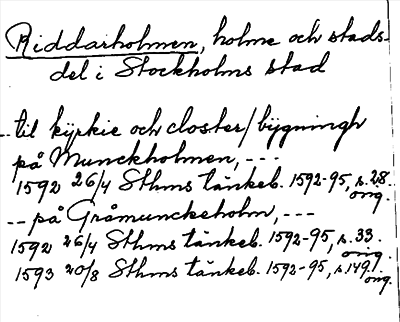 Riddarholmen, holme och stads-
del i Stockholms stad
--til kyrkie och closter/bygningh
på Munckholmen, ---
1592 26/4 Sthms tänkeb. 1592-95, s.28.
orig.
-- på Gråmunckeholm, ---
1592 26/4 Sthms tänkeb. 1592-95, s.33.
orig.
1593 20/8 Sthms tänkeb. 1592-95, s.149.
orig.